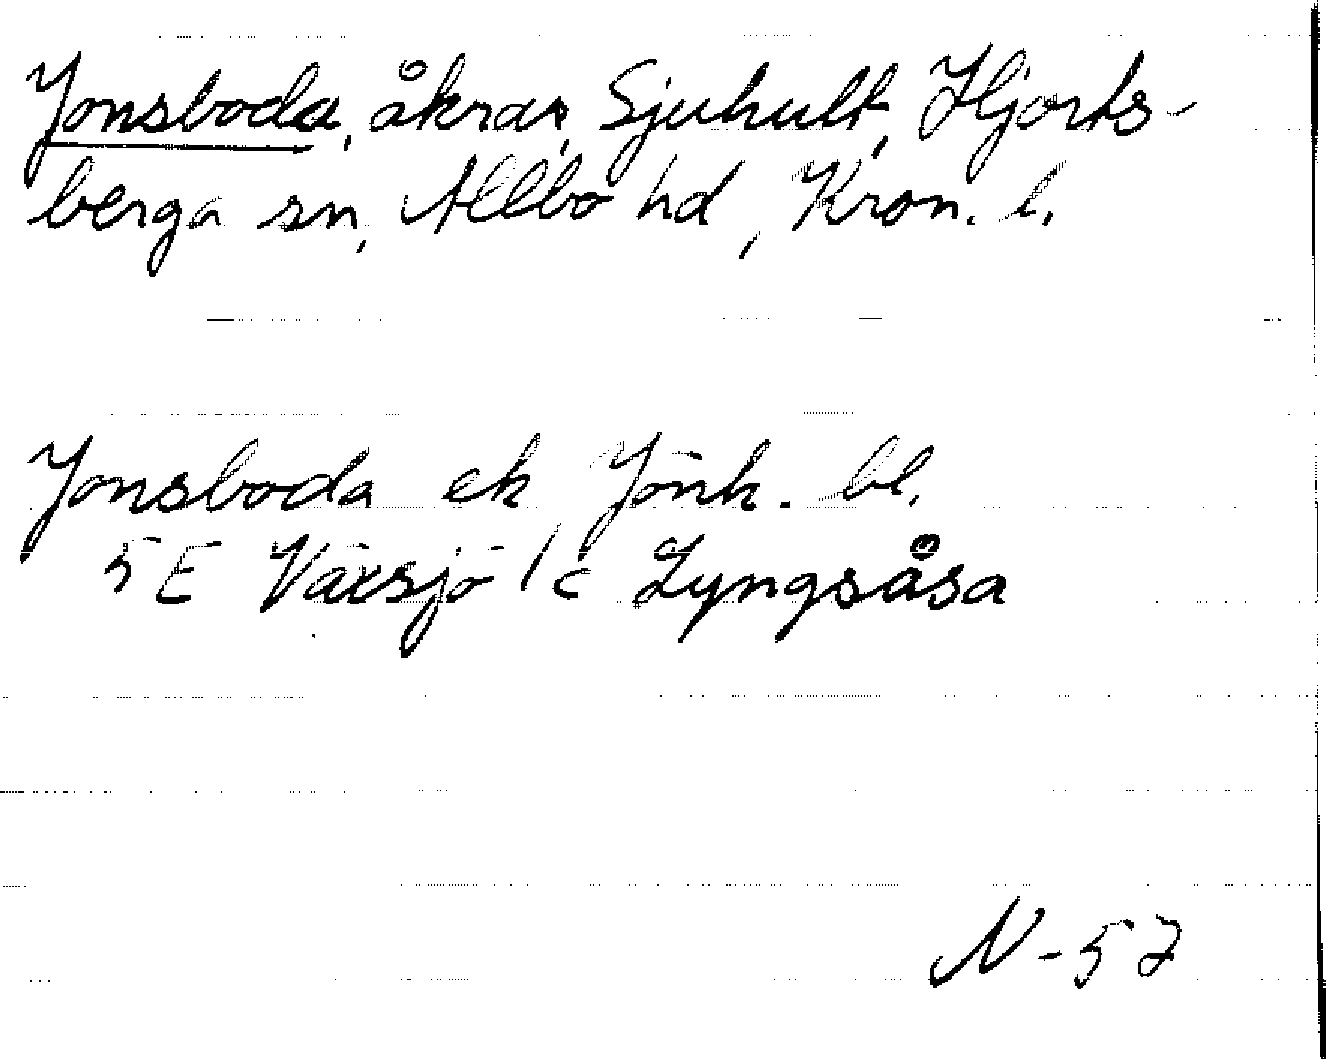 Jonsboda, åkrar, Sjuhult, Hjorts-
berga sn, Allbo hd, Kron. l.
Jonsboda ek Jönk. bl.
5 E Växsjö 1 c Lyngsåsa
N-57